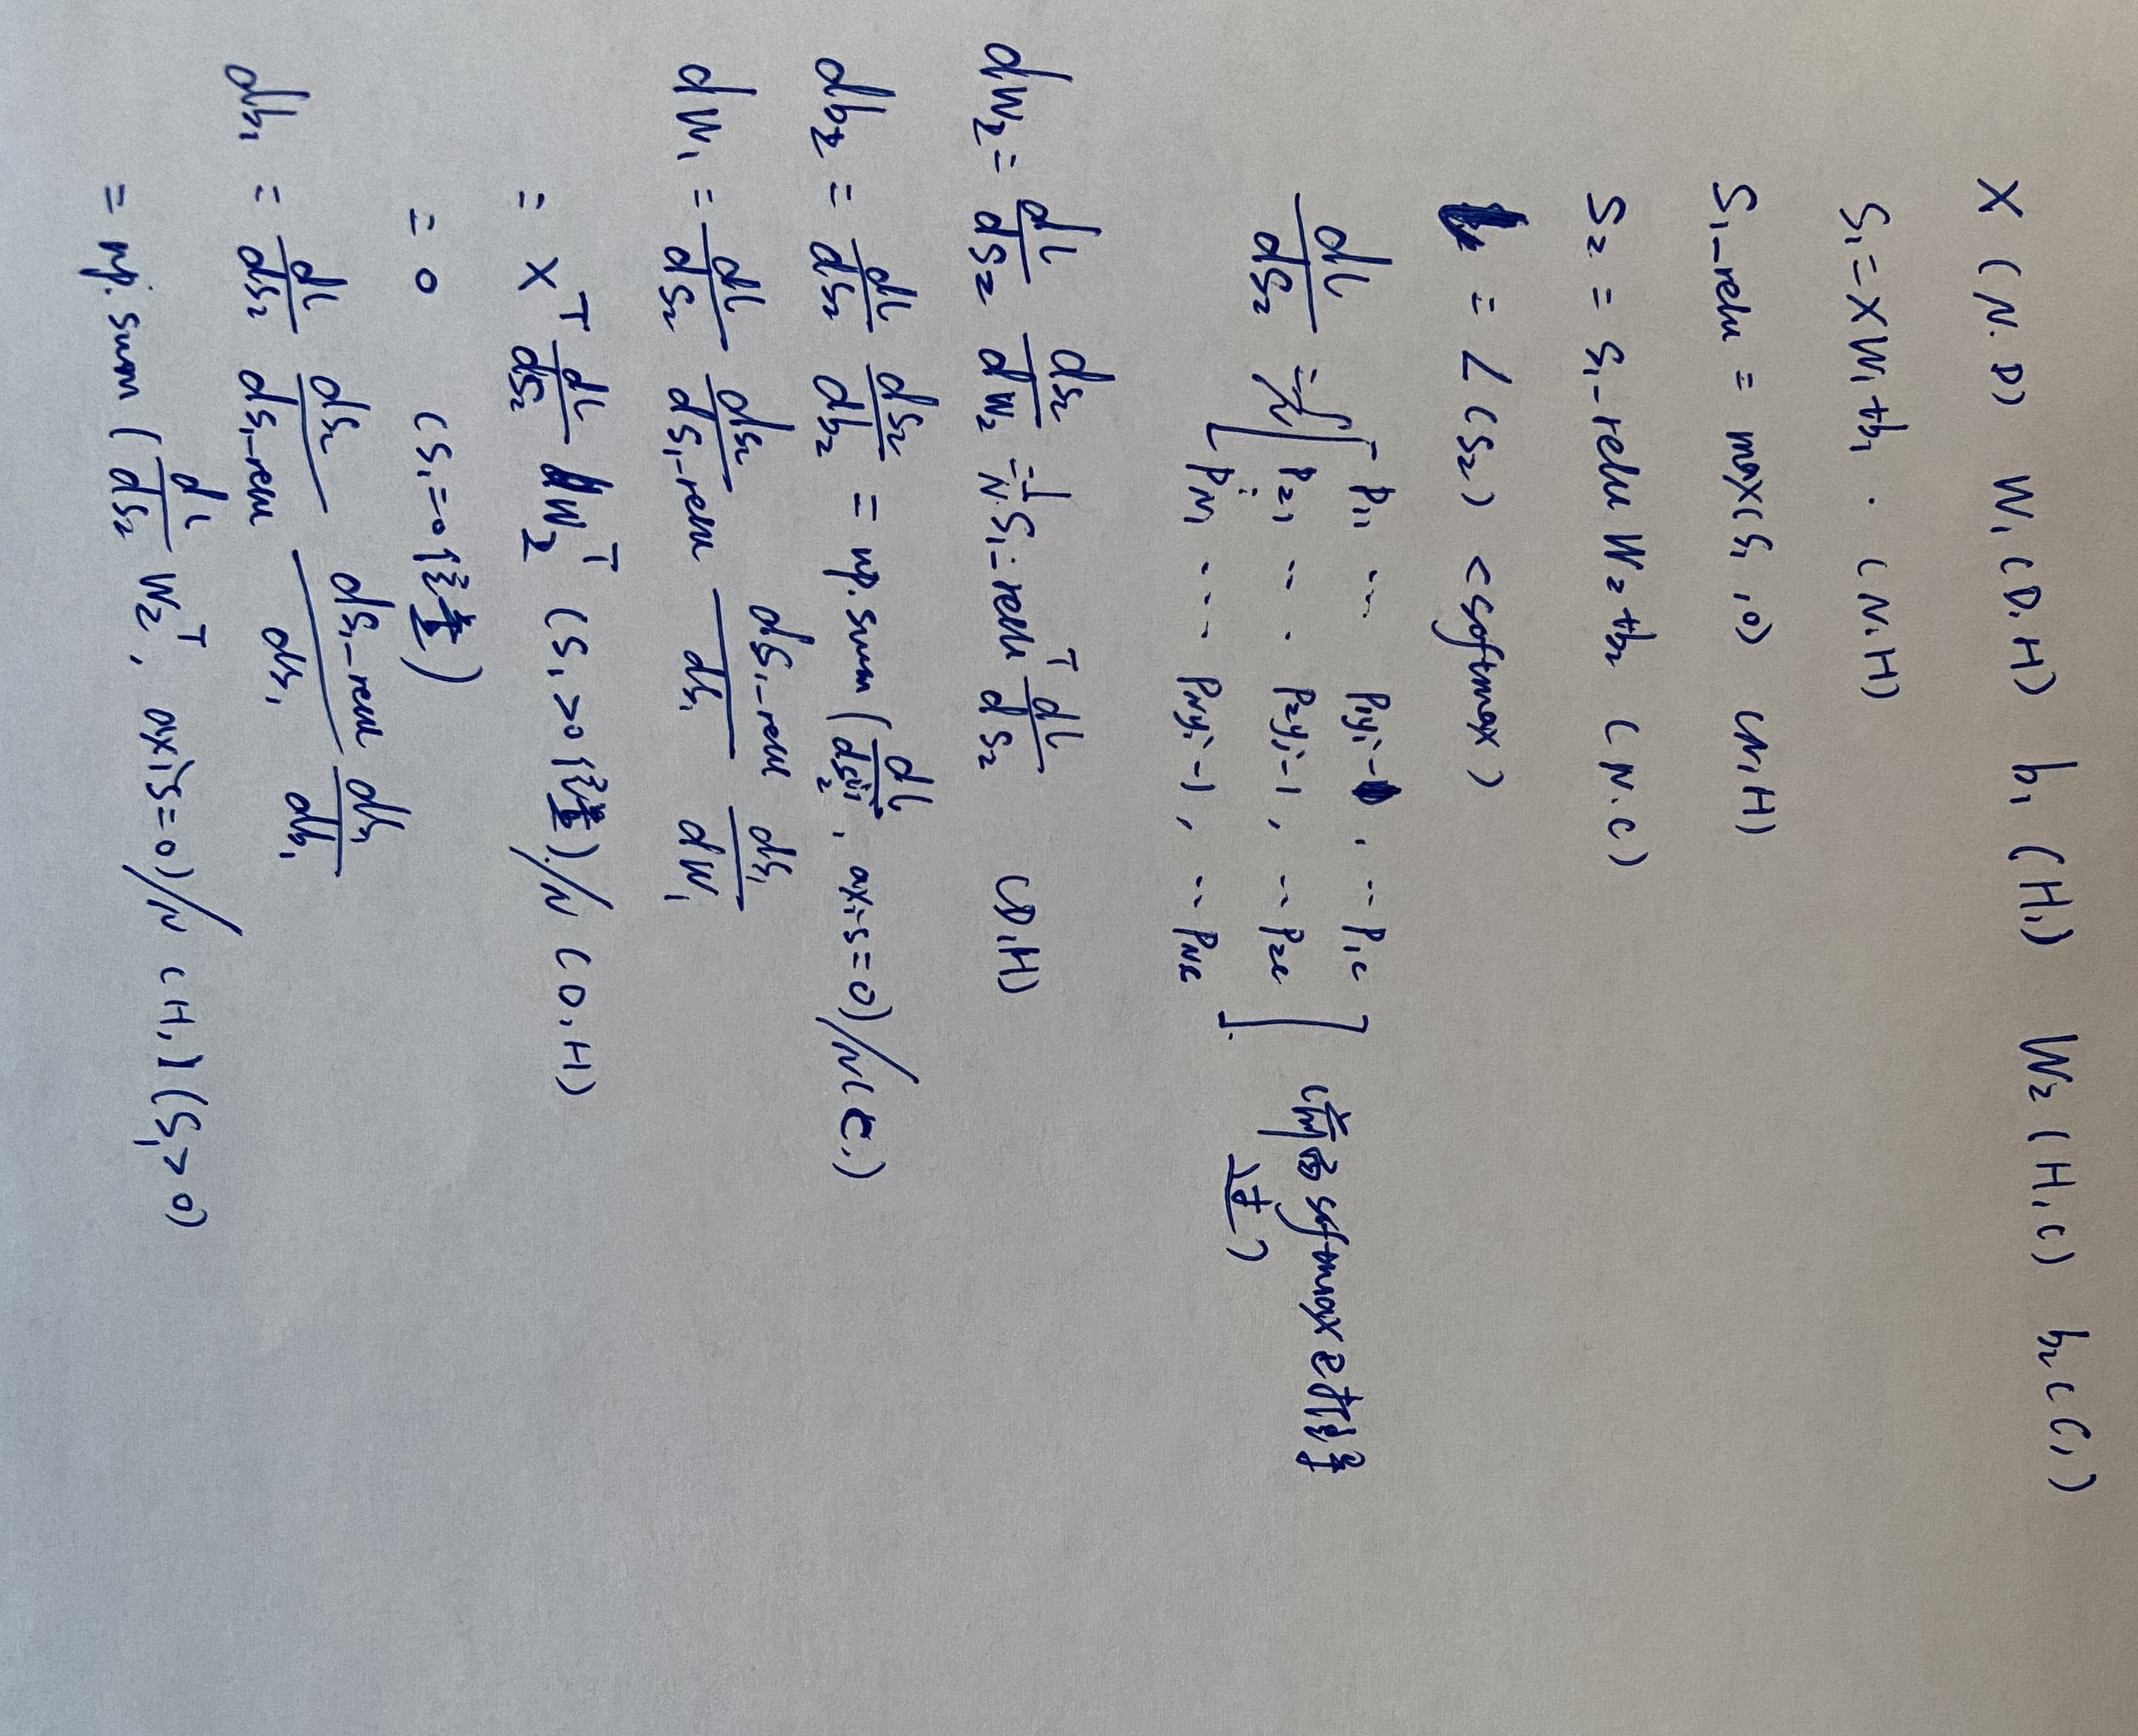 X (N.D) W₁ (D,H) b₁ (H,) W₂ (H,C) b₂ (C,)
S₁ = XW₁+b₁ . (N,H)
S₁_relu = max(S₁,0) (N,H)
S₂ = S₁_relu W₂+b₂ (N.C)
= L(S₂) <softmax>
dL/dS₂ = [ P₁₁ ... P₁yᵢ-1 . .. P₁c
P₂₁ .. . P₂yᵢ-1, .. P₂c
⋮
P_N₁ ... P_Nyᵢ-1, .. P_Nc ] ( softmax
)
dW₂ = dL/dS₂ dS₂/dW₂ = 1/N · S₁_reluᵀ dL/dS₂ (D,H)
db₂ = dL/dS₂ dS₂/db₂ = np.sum(dL/dS₂, axis=0)/N (C,)
dW₁ = dL/dS₂ dS₂/dS₁_relu dS₁_relu/dS₁ dS₁/dW₁
= Xᵀ dL/dS₂ W₂ᵀ (S₁>0)/N (D,H)
= 0 (S₁=0)
db₁ = dL/dS₂ dS₂/dS₁_relu dS₁_relu/dS₁ dS₁/db₁
= np.sum(dL/dS₂ W₂ᵀ, axis=0)/N (H,) (S₁>0)